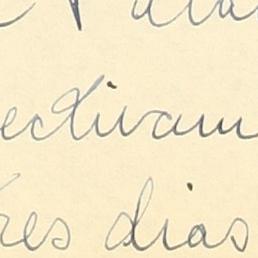 ectivam
res dias